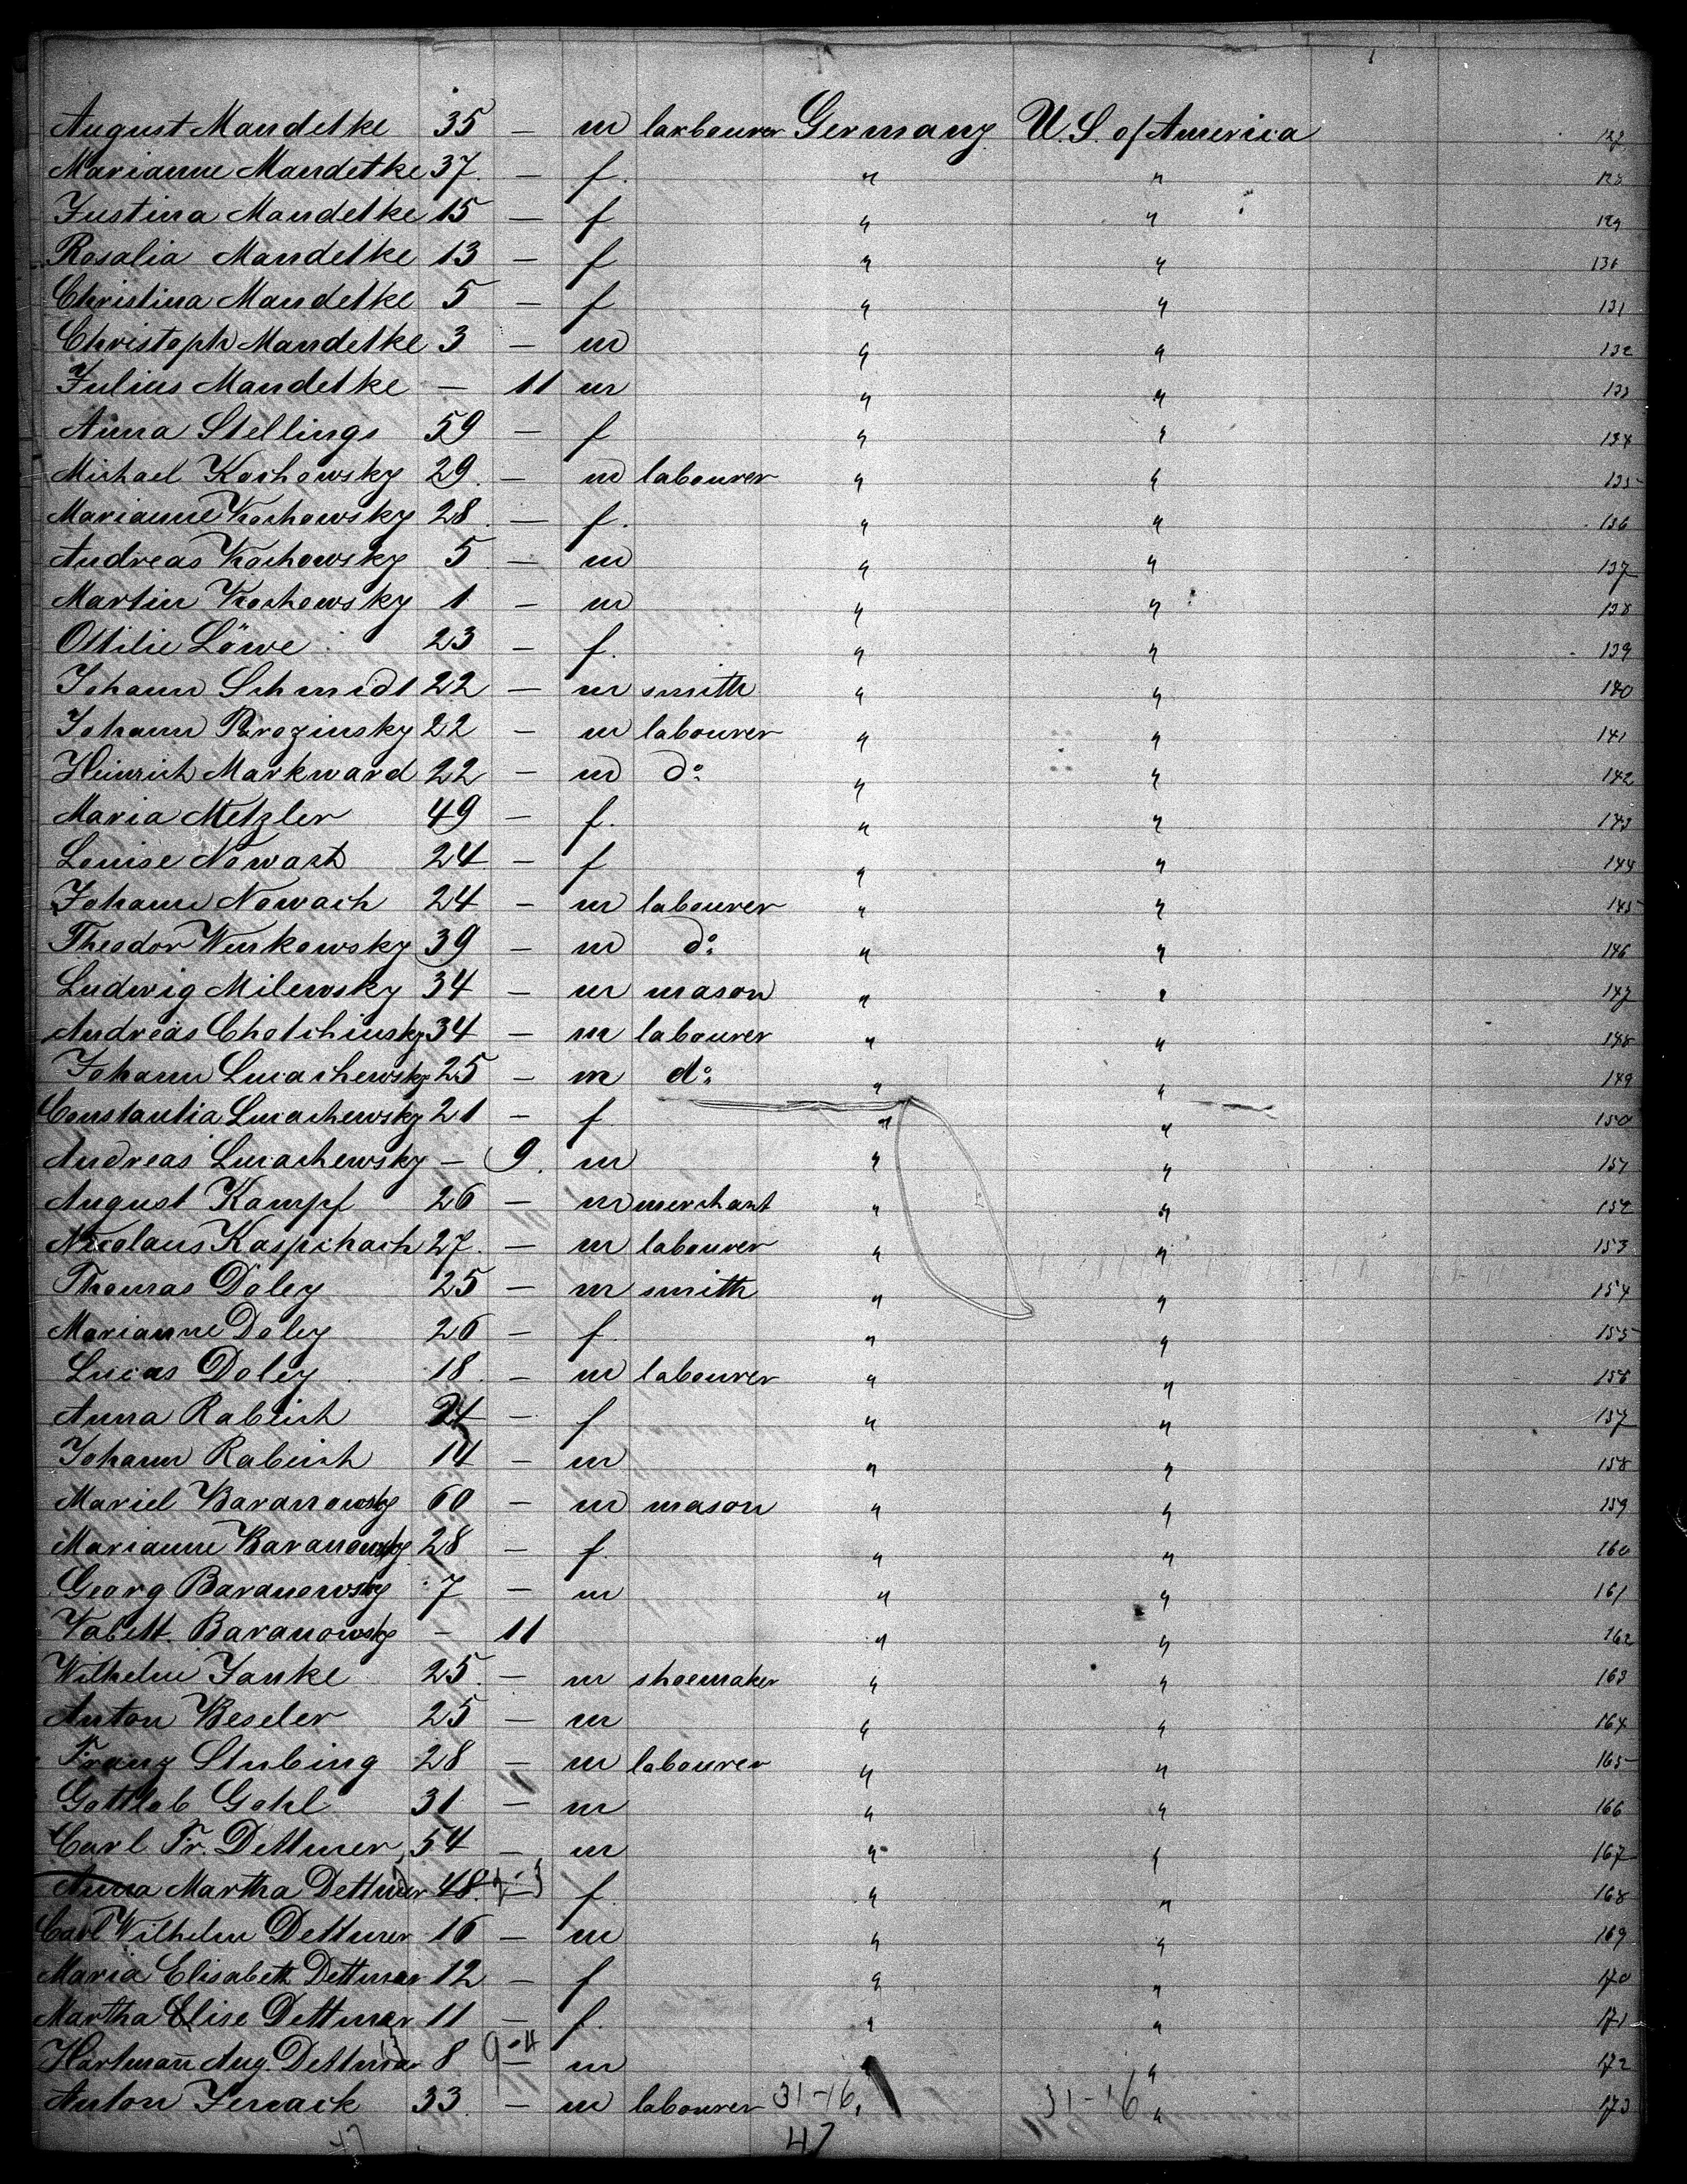 August Mandetke 35 — m laxbourer Germany U.S. of America 127
Marianne Mandetke 37. — f. " " 128
Justina Mandetke 15 — f " " 129
Rosalia Mandetke 13 — f " " 130
Christina Mandetke 5 — f " " 131
Christoph Mandetke 3 — m " " 132
Julius Mandetke — 11 m " " 133
Anna Stellings 59 — f " " 134
Michael Kochowsky 29. — m labourer " " 135
Marianne Kochowsky 28. — f. " " 136
Andreas Kochowsky 5 — m " " 137
Martin Kochowsky 1 — m " " 138
Ottilie Löwe 23 — f. " " 139
Johann Schmidt 22 — m smith " " 140
Johann Brozinsky 22 — m labourer " " 141
Heinrich Markward 22 — m do " " 142
Maria Metzler 49 — f. " " 143
Louise Nowach 24 — f " " 144
Johann Nowach 24 — m labourer " " 145
Theodor Wenkowsky 39 — m do " " 146
Ludwig Milewsky 34 — m mason " " 147
Andreas Chotchinsky 34 — m labourer " " 148
Johann Lucachewsky 25 — m do " " 149
Constantia Lucachewsky 21 — f " " 150
Andreas Lucachewsky — 9. m " " 151
August Kampf 26 — m merchant " " 152
Nicolaus Kaspchach 27. — m labourer " " 153
Thomas Doley 25 — m smith " " 154
Marianne Doley 26 — f. " " 155
Lucas Doley 18. — m labourer " " 156
Anna Rabeich 24 — f " " 157
Johann Rabeich 14 — m " " 158
Mariel Baranowsky 60 — m mason " " 159
Marianne Baranowsky 28 — f. " " 160
Georg Baranowsky 7 — m " " 161
Babett. Baranowsky — 11 " " 162
Wilhelm Janke 25. — m shoemaker " " 163
Anton Beseler 25 — m " " 164
Franz Stubing 28 — m labourer " " 165
Gottlob Gohl 31 — m " " 166
Carl Fr. Dettmer 54 — m " " 167
Anna Martha Dettmer 48 — f " " 168
Carl Wilhelm Dettmer 16 — m " " 169
Maria Elisabeth Dettmer 12 — f " " 170
Martha Elise Dettmer 11 — f. " " 171
Hartmann Aug. Dettmer 8 — m " " 172
Anton Jenack 33. — m labourer 31-16 31-16 " 173
47 47